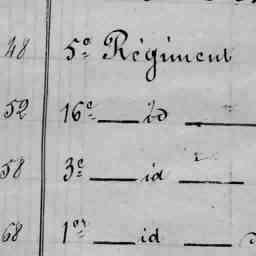 48 5e Régiment
52 16e — id —
58 3e — id —
68 1er — id —